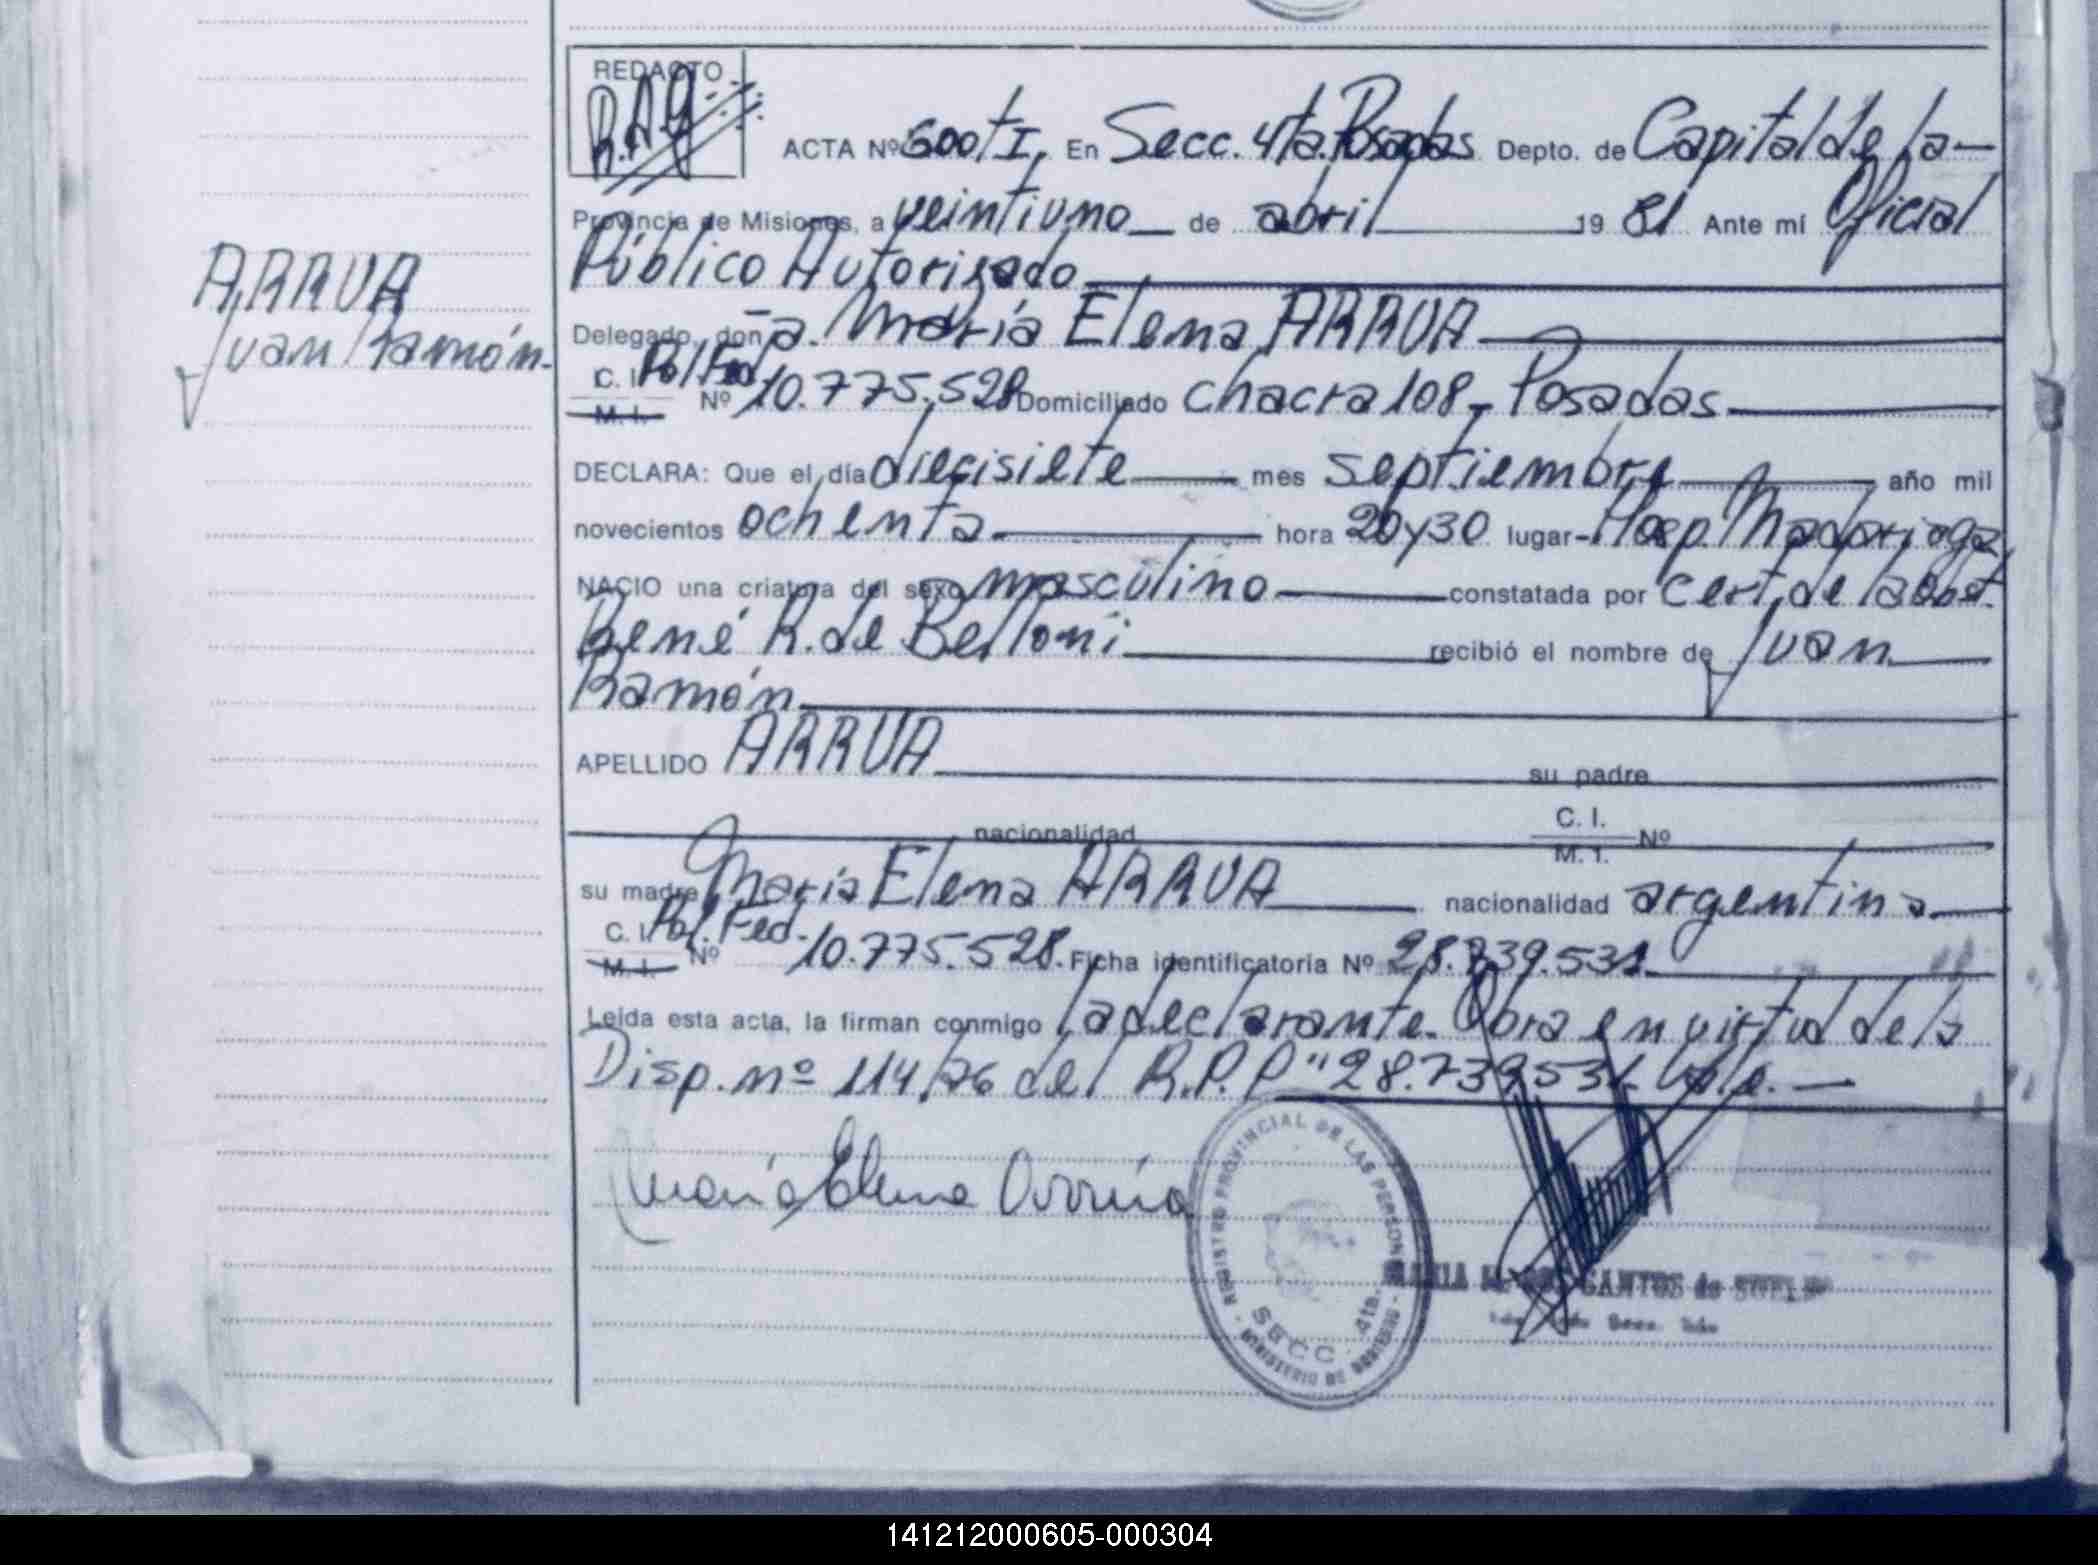 REDACTO
R.A.G
ACTA Nº 600 t I. En Secc. 4ta. Posadas Depto. de Capital de la-
Provincia de Misiones, a veintiuno de abril 19 81 Ante mí Oficial
Público Autorizado
ARRUA
Juan Ramón.
Delegado, don a. María Elena ARRUA
C. I. Pol. Fed.
M. I. Nº 10.775.528 Domiciliado chacra 108- Posadas
DECLARA: Que el día diecisiete mes septiembre año mil
novecientos ochenta hora 20y30 lugar- Hosp. Madariaga
NACIO una criatura del sexo masculino constatada por cert. de la obst.
René R. de Belloni recibió el nombre de Juan
Ramón
APELLIDO ARRUA su padre
nacionalidad C. I. M. I. Nº
su madre María Elena ARRUA nacionalidad argentina
C. I. Pol. Fed.
M. I. Nº 10.775.528. Ficha identificatoria Nº 28.739.531
Leída esta acta, la firman conmigo la declarante. Obra en virtud de la
Disp. nº 114/76 del R.P.P "28.739531 Vale.
María Elena Arrúa
REGISTRO PROVINCIAL DE LAS PERSONAS
SECC. 4ta.
MINISTERIO DE GOBIERNO
MARIA SANTOS de
141212000605-000304